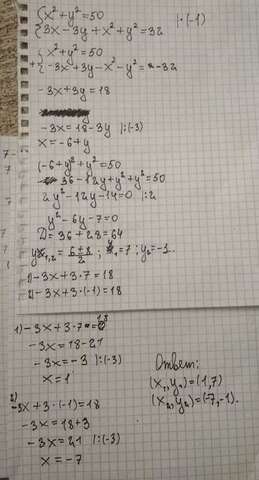 {x²+y²=50
{3x-3y+x²+y²=32 |·(-1)
{x²+y²=50
+{-3x+3y-x²-y²=-32
-3x+3y=18
-3x=18-3y |:(-3)
x=-6+y
(-6+y)²+y²=50
36-12y+y²+y²=50
2y²-12y-14=0 |:2
y²-6y-7=0
D=36+28=64
y₁,₂=(6±8)/2; y₁=7; y₂=-1.
1) -3x+3·7=18
2) -3x+3·(-1)=18
1) -3x+3·7=18
-3x=18-21
-3x=-3 |:(-3)
x=1
2)
-3x+3·(-1)=18
-3x=18+3
-3x=21 |:(-3)
x=-7
Ответ:
(x₁,y₁)=(1,7)
(x₂,y₂)=(-7,-1).